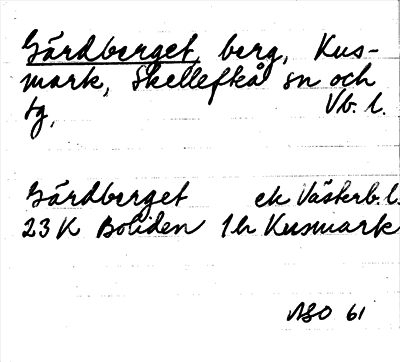 Gärdberget, berg, Kus-
mark, Skellefteå sn och
tg, Vb. l.
Gärdberget ek Västerb. l.
23 K Boliden 1h Kusmark
NSO 61